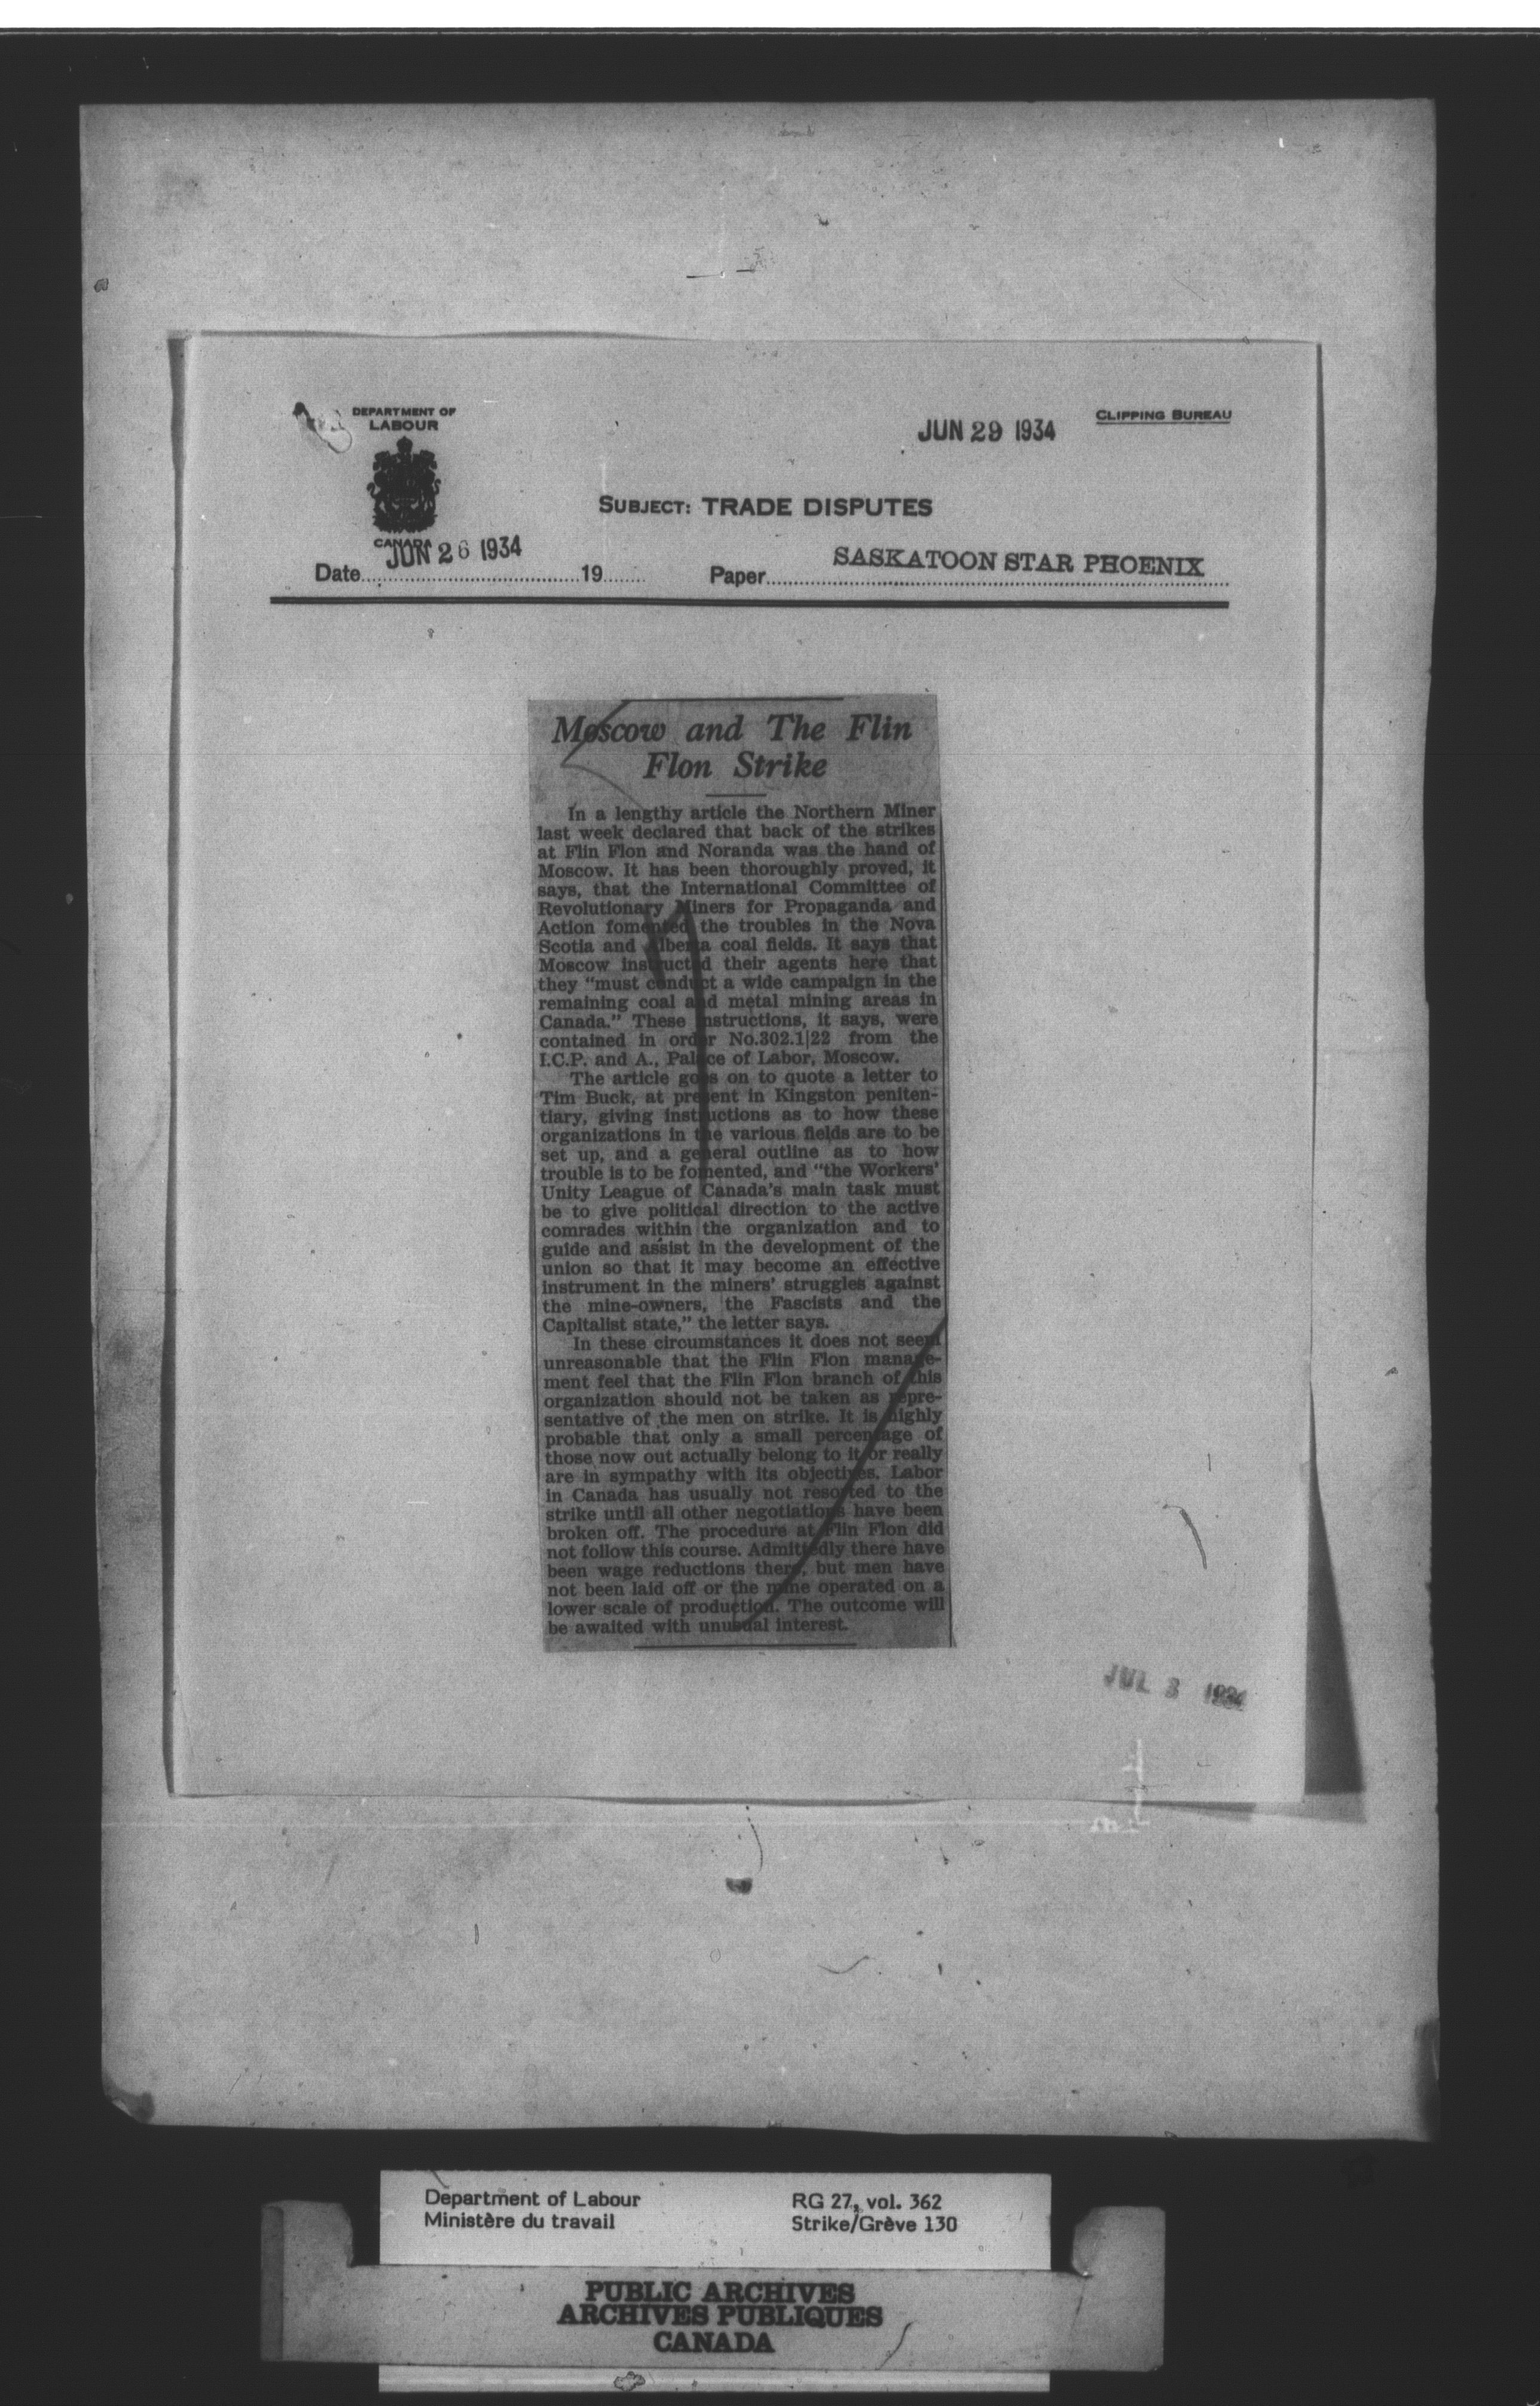 DEPARTMENT OF
LABOUR
CANADA
JUN 29 1934
CLIPPING BUREAU
SUBJECT: TRADE DISPUTES
Date JUN 26 1934 19 Paper SASKATOON STAR PHOENIX
Moscow and The Flin
Flon Strike
In a lengthy article the Northern Miner
last week declared that back of the strikes
at Flin Flon and Noranda was the hand of
Moscow. It has been thoroughly proved, it
says, that the International Committee of
Revolutionary Miners for Propaganda and
Action fomented the troubles in the Nova
Scotia and Alberta coal fields. It says that
Moscow instructed their agents here that
they "must conduct a wide campaign in the
remaining coal and metal mining areas in
Canada." These instructions, it says, were
contained in order No.302.1|22 from the
I.C.P. and A., Palace of Labor, Moscow.
The article goes on to quote a letter to
Tim Buck, at present in Kingston peniten-
tiary, giving instructions as to how these
organizations in the various fields are to be
set up, and a general outline as to how
trouble is to be fomented, and "the Workers'
Unity League of Canada's main task must
be to give political direction to the active
comrades within the organization and to
guide and assist in the development of the
union so that it may become an effective
instrument in the miners' struggles against
the mine-owners, the Fascists and the
Capitalist state," the letter says.
In these circumstances it does not seem
unreasonable that the Flin Flon manage-
ment feel that the Flin Flon branch of this
organization should not be taken as repre-
sentative of the men on strike. It is highly
probable that only a small percentage of
those now out actually belong to it or really
are in sympathy with its objectives. Labor
in Canada has usually not resorted to the
strike until all other negotiations have been
broken off. The procedure at Flin Flon did
not follow this course. Admittedly there have
been wage reductions there, but men have
not been laid off or the mine operated on a
lower scale of production. The outcome will
be awaited with unusual interest.
JUL 3 1934
Department of Labour
Ministère du travail
RG 27, vol. 362
Strike/Grève 130
PUBLIC ARCHIVES
ARCHIVES PUBLIQUES
CANADA